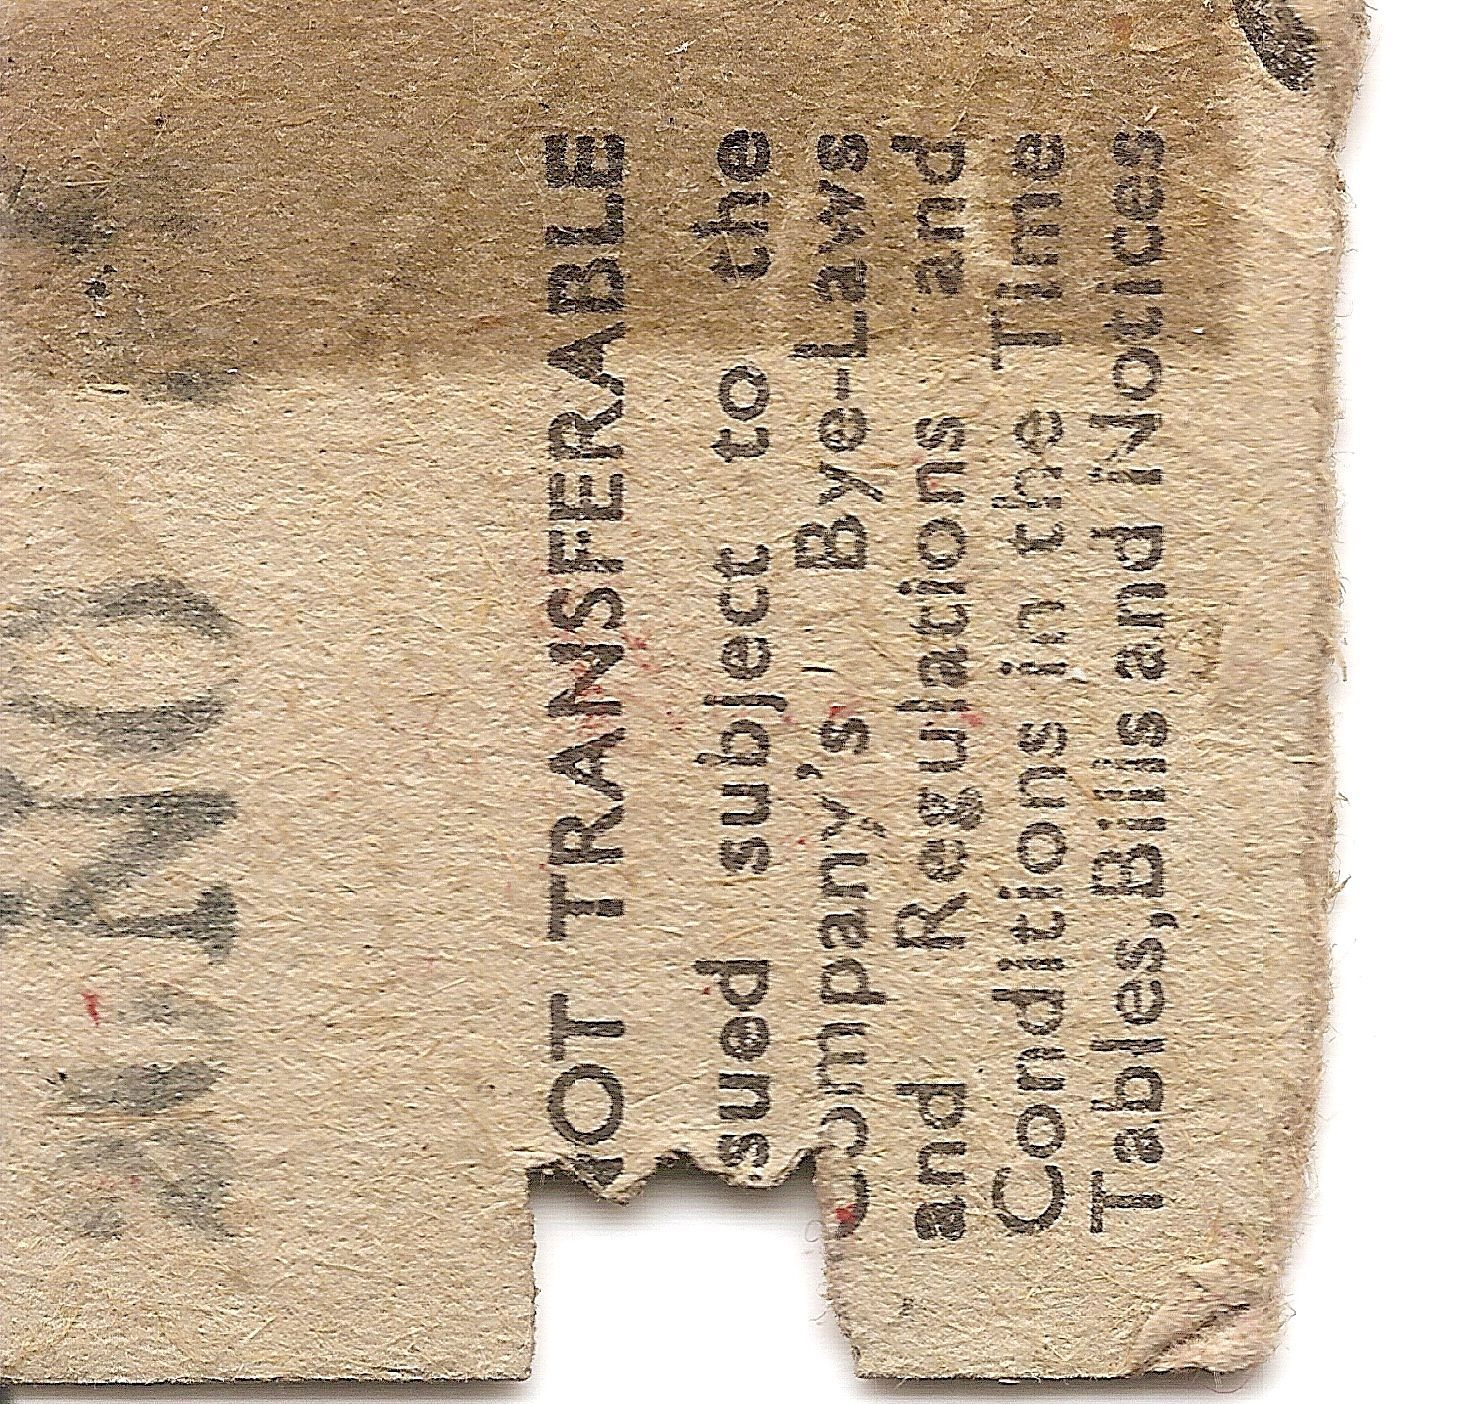 NOT TRANSFERABLE
sued subject to the
Company's Bye-Laws
and Regulations and
Conditions in the Time
Tables,Bills and Notices